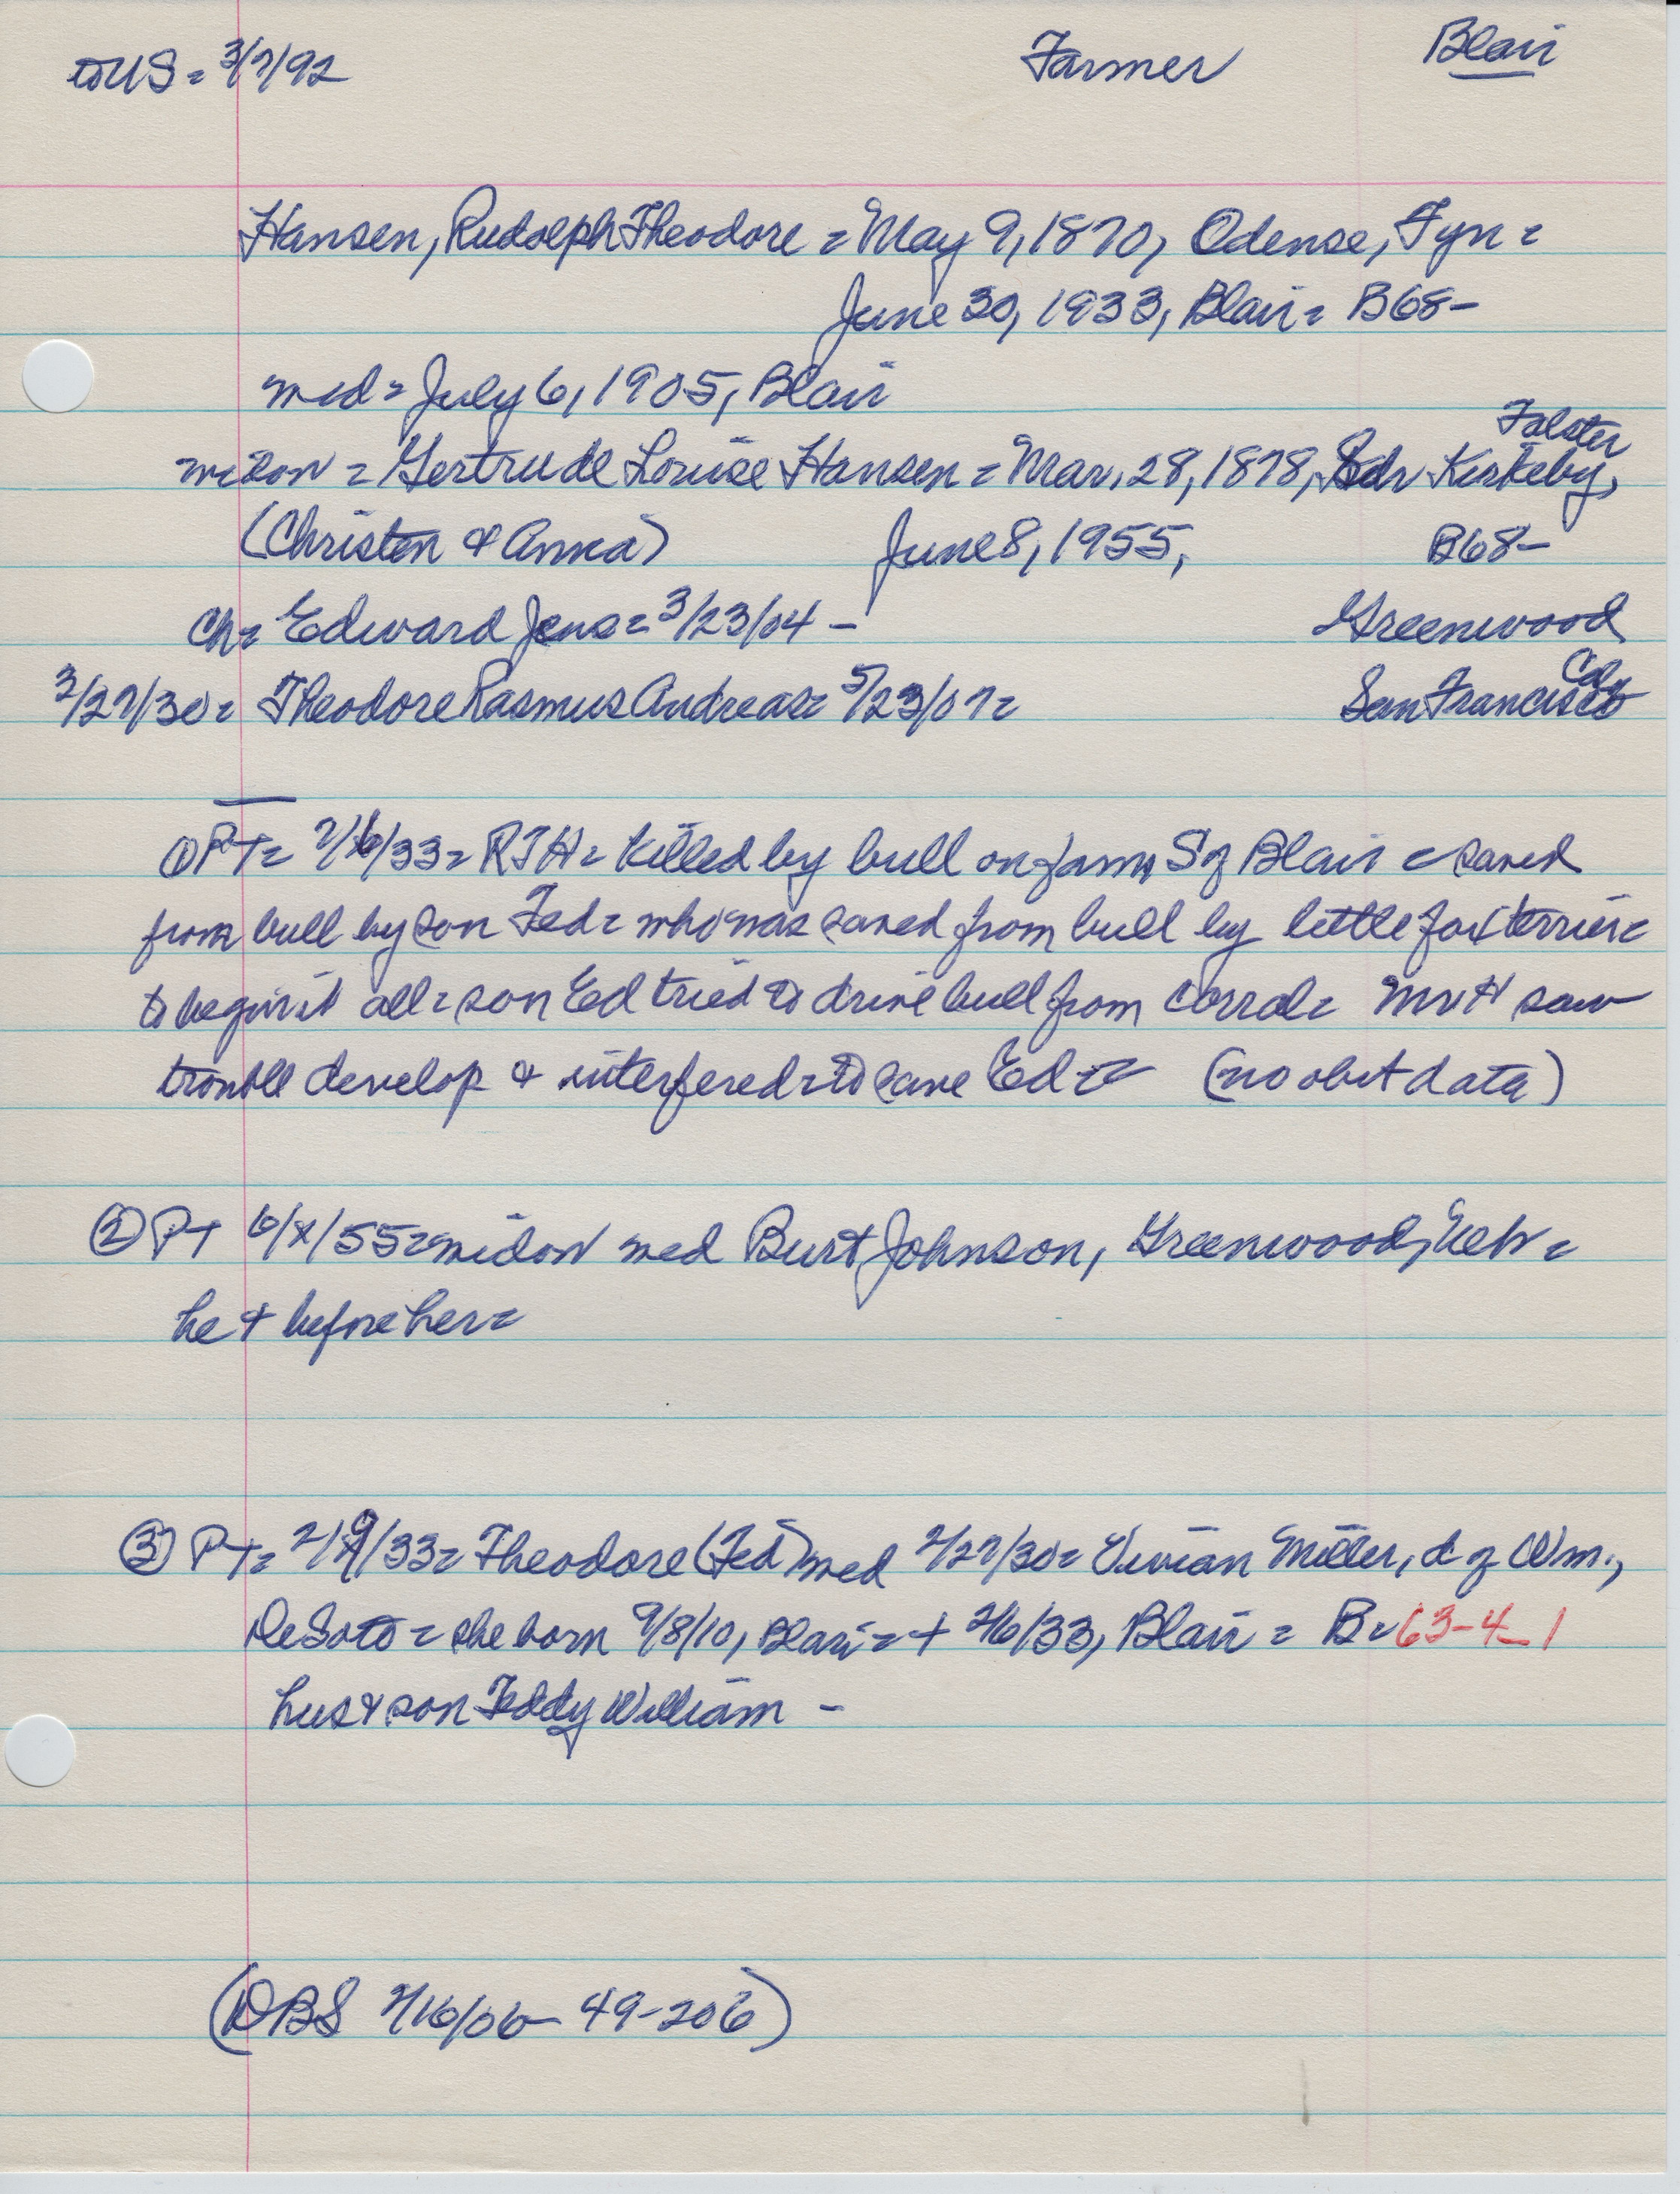 to US = 3/7/92 Farmer Blair
Hansen, Rudolph Theodore = May 9, 1870, Odense, Fyn =
June 30, 1933, Blair = B68-
med = July 6, 1905, Blair
Falster
widow = Gertrude Louise Hansen = Mar, 28, 1878, Sdr Kirkeby,
(Christen & Anna) June 8, 1955, B68-
ch = Edward Jens = 3/23/04 - Greenwood
Calif
2/27/30 = Theodore Rasmus Andreas = 5/23/07 = San Francisco
① PT = 7/6/33 = RTH = killed by bull on farm S of Blair = saved
from bull by son Ted = who was saved from bull by little fox terrier =
to begin it all = son Ed tried to drive bull from corral = Mr H saw
trouble develop & interfered = to save Ed = (no obit data)
② PT 6/x/55 = widow med Burt Johnson, Greenwood, Neb =
he + before her =
③ PT = 2/9/33 = Theodore (Ted) med 2/27/30 = Vivian Miller, d of Wm.,
DeSoto = she born 9/8/10, Blair = + 2/6/33, Blair = B = 63-4-1
hus & son Teddy William -
(DBS 2/16/06- 49-206)